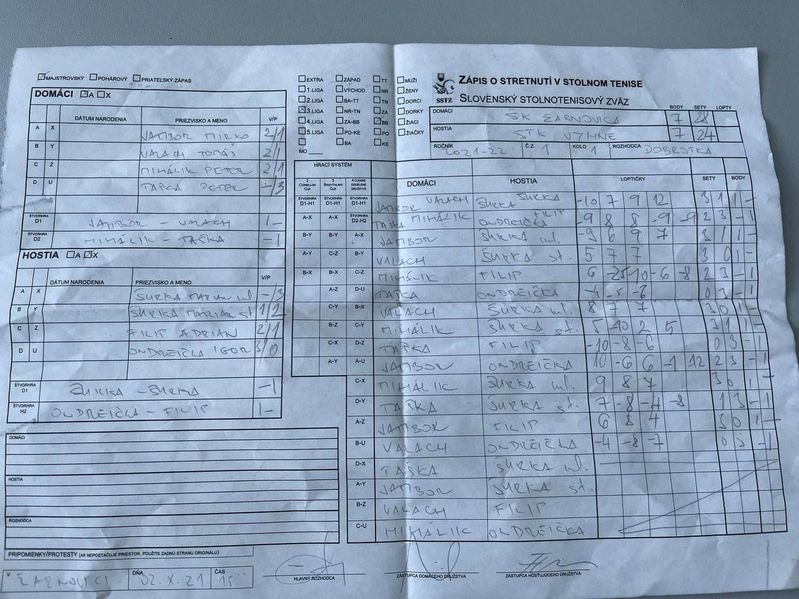 MAJSTROVSKÝ POHÁROVÝ PRIATEĽSKÝ ZÁPAS
DOMÁCI A X
DÁTUM NARODENIA PRIEZVISKO A MENO V/P
A X JAMBOR MIRKO 2/1
B Y VALACH TOMÁŠ 2/1
C Z MIHÁLIK PETER 2/1
D U TAŠKA PETER -/3
ŠTVORHRA D1 JAMBOR - VALACH 1-
ŠTVORHRA D2 MIHÁLIK - TAŠKA -1
HOSTIA A X
DÁTUM NARODENIA PRIEZVISKO A MENO V/P
A X SURKA MARIAN ml -/3
B Y SURKA MARIAN st 1/2
C Z FILIP ADRIAN 2/1
D U ONDREIČKA IGOR 3/0
ŠTVORHRA D1 SURKA - SURKA -1
ŠTVORHRA H2 ONDREIČKA - FILIP 1-
DOMÁCI
HOSTIA
ROZHODCA
PRIPOMIENKY/PROTESTY (AK NEPOSTAČUJE PRIESTOR, POUŽITE ZADNÚ STRANU ORIGINÁLU)
V ŽARNOVICI DŇA 02.X.21 ČAS
HLAVNÝ ROZHODCA
ZÁSTUPCA DOMÁCEHO DRUŽSTVA
ZÁSTUPCA HOSŤUJÚCEHO DRUŽSTVA
EXTRA ZÁPAD TT MUŽI
1. LIGA VÝCHOD NR ŽENY
2. LIGA BA-TT TN DORCI
3. LIGA NR-TN ZA DORKY
4. LIGA ZA-BB BB ŽIACI
5. LIGA PO-KE PO ŽIAČKY
BA KE
MO
ZÁPIS O STRETNUTÍ V STOLNOM TENISE
SSTZ SLOVENSKÝ STOLNOTENISOVÝ ZVÄZ
BODY SETY LOPTY
DOMÁCI ŠK ŽARNOVICA 7 28
HOSTIA STK VYHNE 7 24
ROČNÍK 2021-22 Č.Z. 1 KOLO 1 ROZHODCA DOBROTKA
HRACÍ SYSTÉM
DOMÁCI HOSTIA LOPTIČKY SETY BODY
D1-H1 JAMBOR VALACH SURKA SURKA -10 7 9 12 3 1 1 -
D2-H2 TAŠKA MIHÁLIK ONDREIČKA FILIP -9 8 8 -9 -9 2 3 - 1
A-X JAMBOR SURKA ml. -9 6 9 7 3 1 1 -
B-Y VALACH SURKA st. 5 7 7 3 0 1 -
C-Z MIHÁLIK FILIP 6 -25 10 -6 -8 2 3 - 1
D-U TAŠKA ONDREIČKA -4 -5 -6 0 3 - 1
B-X VALACH SURKA ml. 8 7 7 3 0 1 -
C-Y MIHÁLIK SURKA st. 5 -10 2 5 3 1 1 -
D-Z TAŠKA FILIP -10 -8 -6 0 3 - 1
A-U JAMBOR ONDREIČKA 10 -6 6 -1 -12 2 3 - 1
C-X MIHÁLIK SURKA ml. 9 8 7 3 0 1 -
D-Y TAŠKA SURKA st. 7 -8 -4 -8 1 3 - 1
A-Z JAMBOR FILIP 6 8 4 3 0 1 -
B-U VALACH ONDREIČKA -4 -8 -7 0 3 - 1
D-X TAŠKA SURKA ml.
A-Y JAMBOR SURKA st.
B-Z VALACH FILIP
C-U MIHÁLIK ONDREIČKA